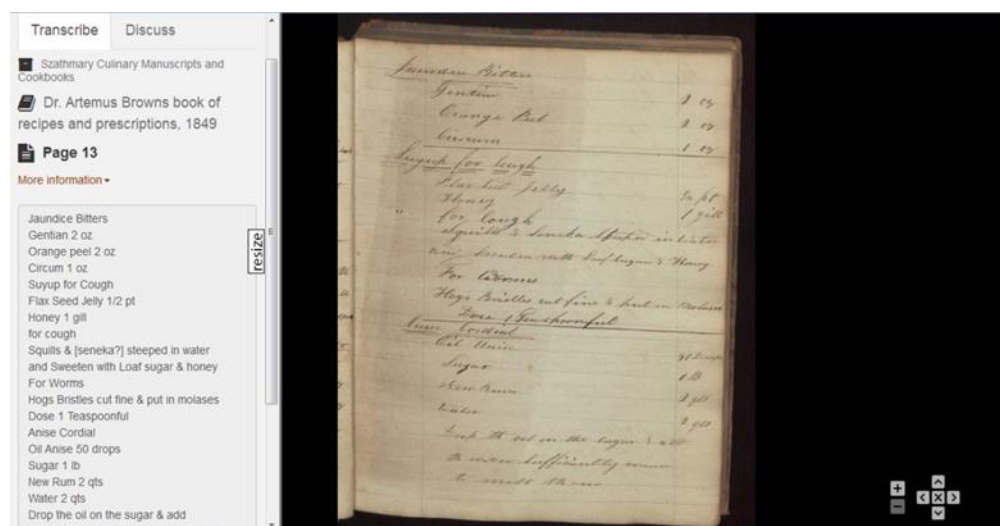 Transcribe Discuss
Szathmary Culinary Manuscripts and
Cookbooks
Dr. Artemus Browns book of
recipes and prescriptions, 1849
Page 13
More information
Jaundice Bitters
Gentian 2 oz
Orange peel 2 oz
Circum 1 oz
Suyup for Cough
Flax Seed Jelly 1/2 pt
Honey 1 gill
for cough
Squills & [seneka?] steeped in water
and Sweeten with Loaf sugar & honey
For Worms
Hogs Bristles cut fine & put in molases
Dose 1 Teaspoonful
Anise Cordial
Oil Anise 50 drops
Sugar 1 lb
New Rum 2 qts
Water 2 qts
Drop the oil on the sugar & add
resize
Bitters
Gentian 2 oz
Orange Peel 2 oz
1 oz
Suyup for Cough
Jelly 1/2 pt
Honey 1 gill
" for Cough
Squills & Seneka in water
and with Loaf Sugar & Honey
For Worms
Hogs Bristles cut fine & put in
Dose 1 Teaspoonful
Cordial
Oil Anise
Sugar 1 lb
New Rum 2 qts
Water 2 qts
Drop the oil on the sugar & add
the water sufficiently warm
to melt the